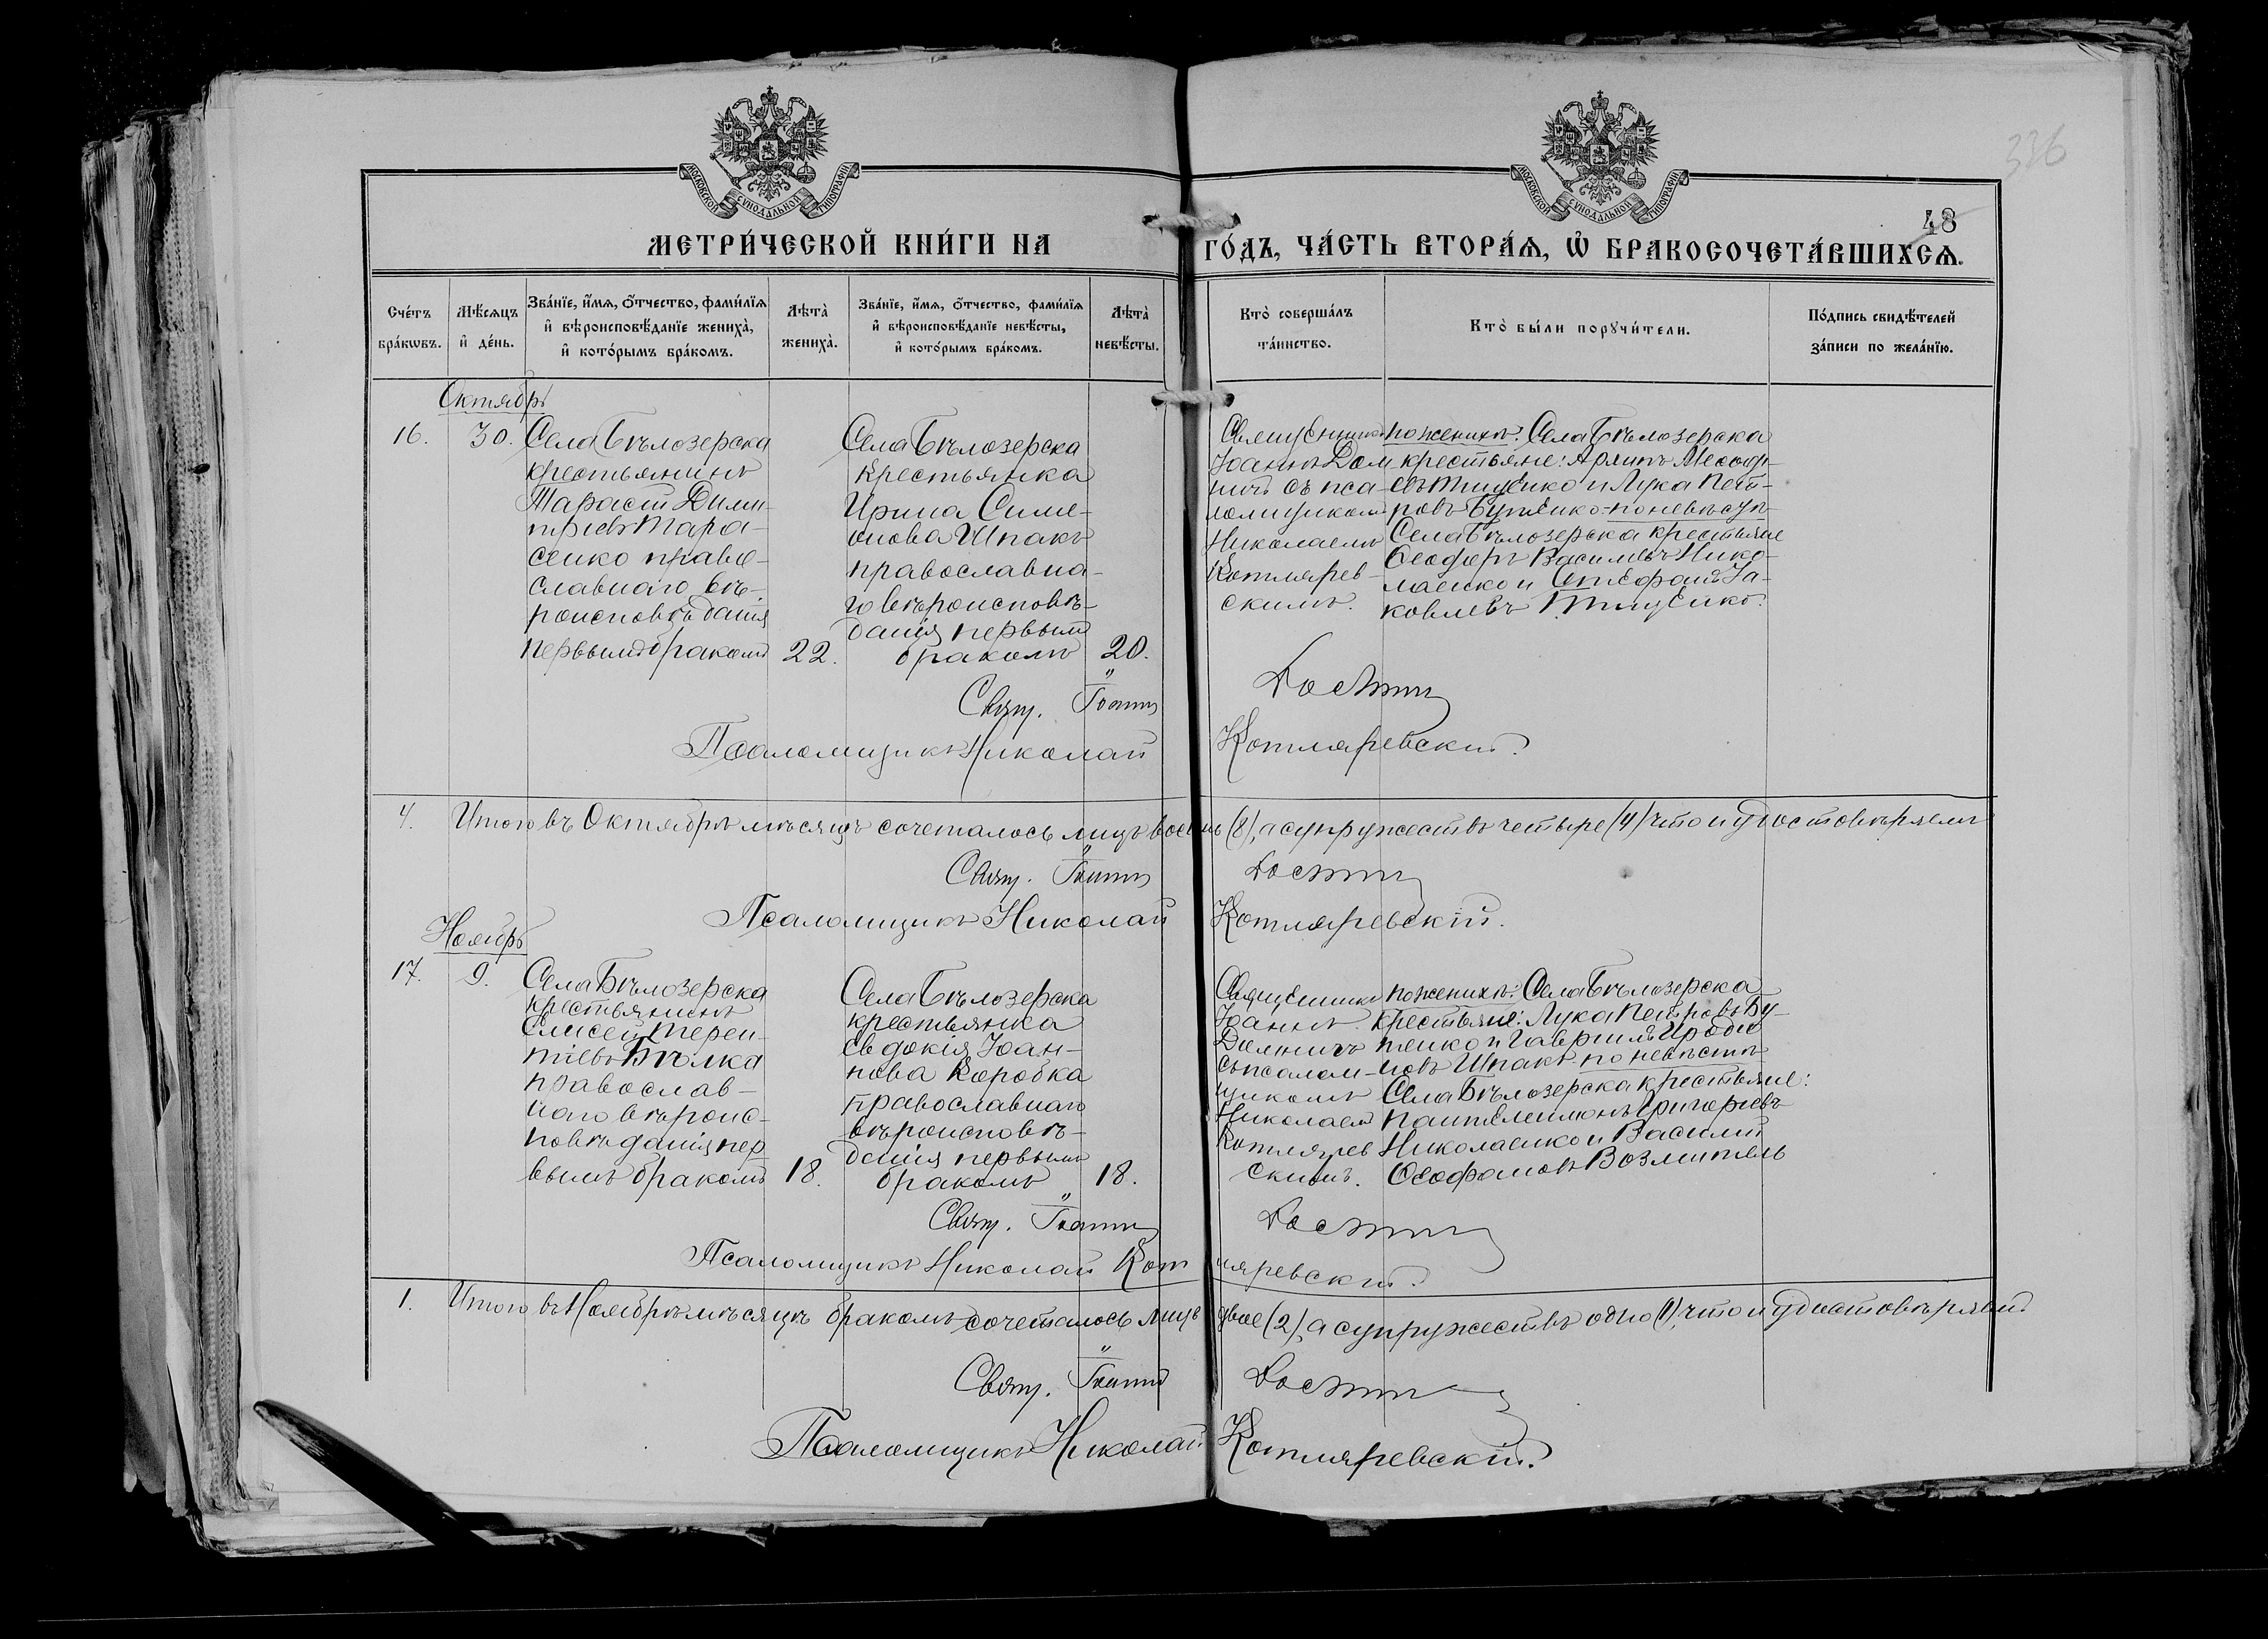 МОСКОВСКОЙ СУНОДАЛЬНОЙ ТИПОГРАФІИ
МОСКОВСКОЙ СУНОДАЛЬНОЙ ТИПОГРАФІИ
336
48
МЕТРИ́ЧЕСКОЙ КНИ́ГИ НА ГО́ДЪ, ЧА́СТЬ ВТОРА́Ѧ, Ѿ БРАКОСОЧЕТА́ВШИХСѦ.
Сче́тъ бра́кѡвъ.
Мѣ́сѧцъ и҆ де́нь.
Зва́нїе, и҆́мѧ, ѻ҆́тчество, фами́лїѧ
и҆ вѣроисповѣ́данїе жениха̀,
и҆ кото́рымъ бра́комъ.
Лѣта̀ жениха̀.
Зва́нїе, и҆́мѧ, ѻ҆́тчество, фами́лїѧ
и҆ вѣроисповѣ́данїе невѣ́сты,
и҆ кото́рымъ бра́комъ.
Лѣта̀ невѣ́сты.
Кто̀ соверша́лъ та́инство.
Кто̀ бы́ли порꙋчи́тели.
По́дпись свидѣ́телей
за́писи по жела́нїю.
Октябрь
16.
30.
Села Бѣлозерска
крестьянинъ
Тарасій Дими-
тріевъ Тара-
сенко право-
славнаго вѣ-
роисповѣданія
первымъ бракомъ
22.
Села Бѣлозерска
крестьянка
Ирина Симе-
онова Шпакъ
православна-
го вѣроисповѣ-
данія первымъ
бракомъ
20.
Священникъ
Іоаннъ
съ пса-
ломщикомъ
Николаемъ
Котлярев-
скимъ.
по женихѣ: Села Бѣлозерска
крестьяне:
Тищенко и Лука Пет-
ровъ Бутенко - по невѣстѣ
Села Бѣлозерска крестьяне
Ѳеодоръ Васильевъ Нико-
лаенко и Стефанъ Іа-
ковлевъ Тищенко.
Свящ. Іоаннъ
Псаломщикъ Николай Котляревскій.
4. Итого въ Октябрѣ мѣсяцѣ сочеталось лицъ восемь (8), а супружествъ четыре (4) что и удостовѣряемъ
Свящ. Іоаннъ
Псаломщикъ Николай Котляревскій.
Ноябрь
17.
9.
Села Бѣлозерска
крестьянинъ
Елисей Терен-
тіевъ
православ-
наго вѣроис-
повѣданія пер
вымъ бракомъ
18.
Села Бѣлозерска
крестьянка
Евдокія Іоан-
нова Коробка
православнаго
вѣроисповѣ-
данія первымъ
бракомъ
18.
Священникъ
Іоаннъ
съ псалом-
щикомъ
Николаемъ
Котлярев
скимъ.
по женихѣ: Села Бѣлозерска
крестьяне: Лука Петровъ Бу-
тенко и Гавріилъ Иродіо
новъ Шпакъ - по невѣстѣ
Села Бѣлозерска крестьяне:
Пантелеимонъ Григорьевъ
Николаенко и Василій
Ѳеофановъ Возлитель
Свящ. Іоаннъ
Псаломщикъ Николай Котляревскій.
1. Итого въ Ноябрѣ мѣсяцѣ бракомъ сочеталось лицъ двое (2), а супружествъ одно (1), что и удостовѣряемъ
Свящ. Іоаннъ
Псаломщикъ Николай Котляревскій.